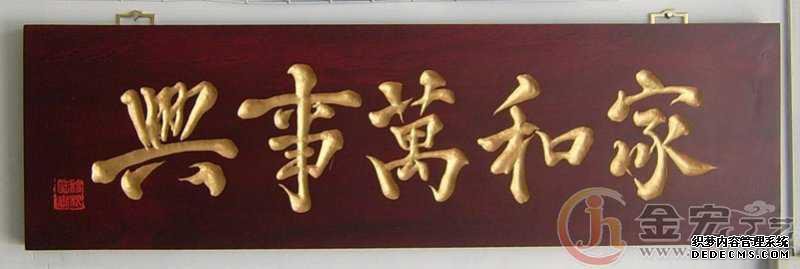 家和萬事興
金宏工艺
织梦内容管理系统
DEDECMS.COM